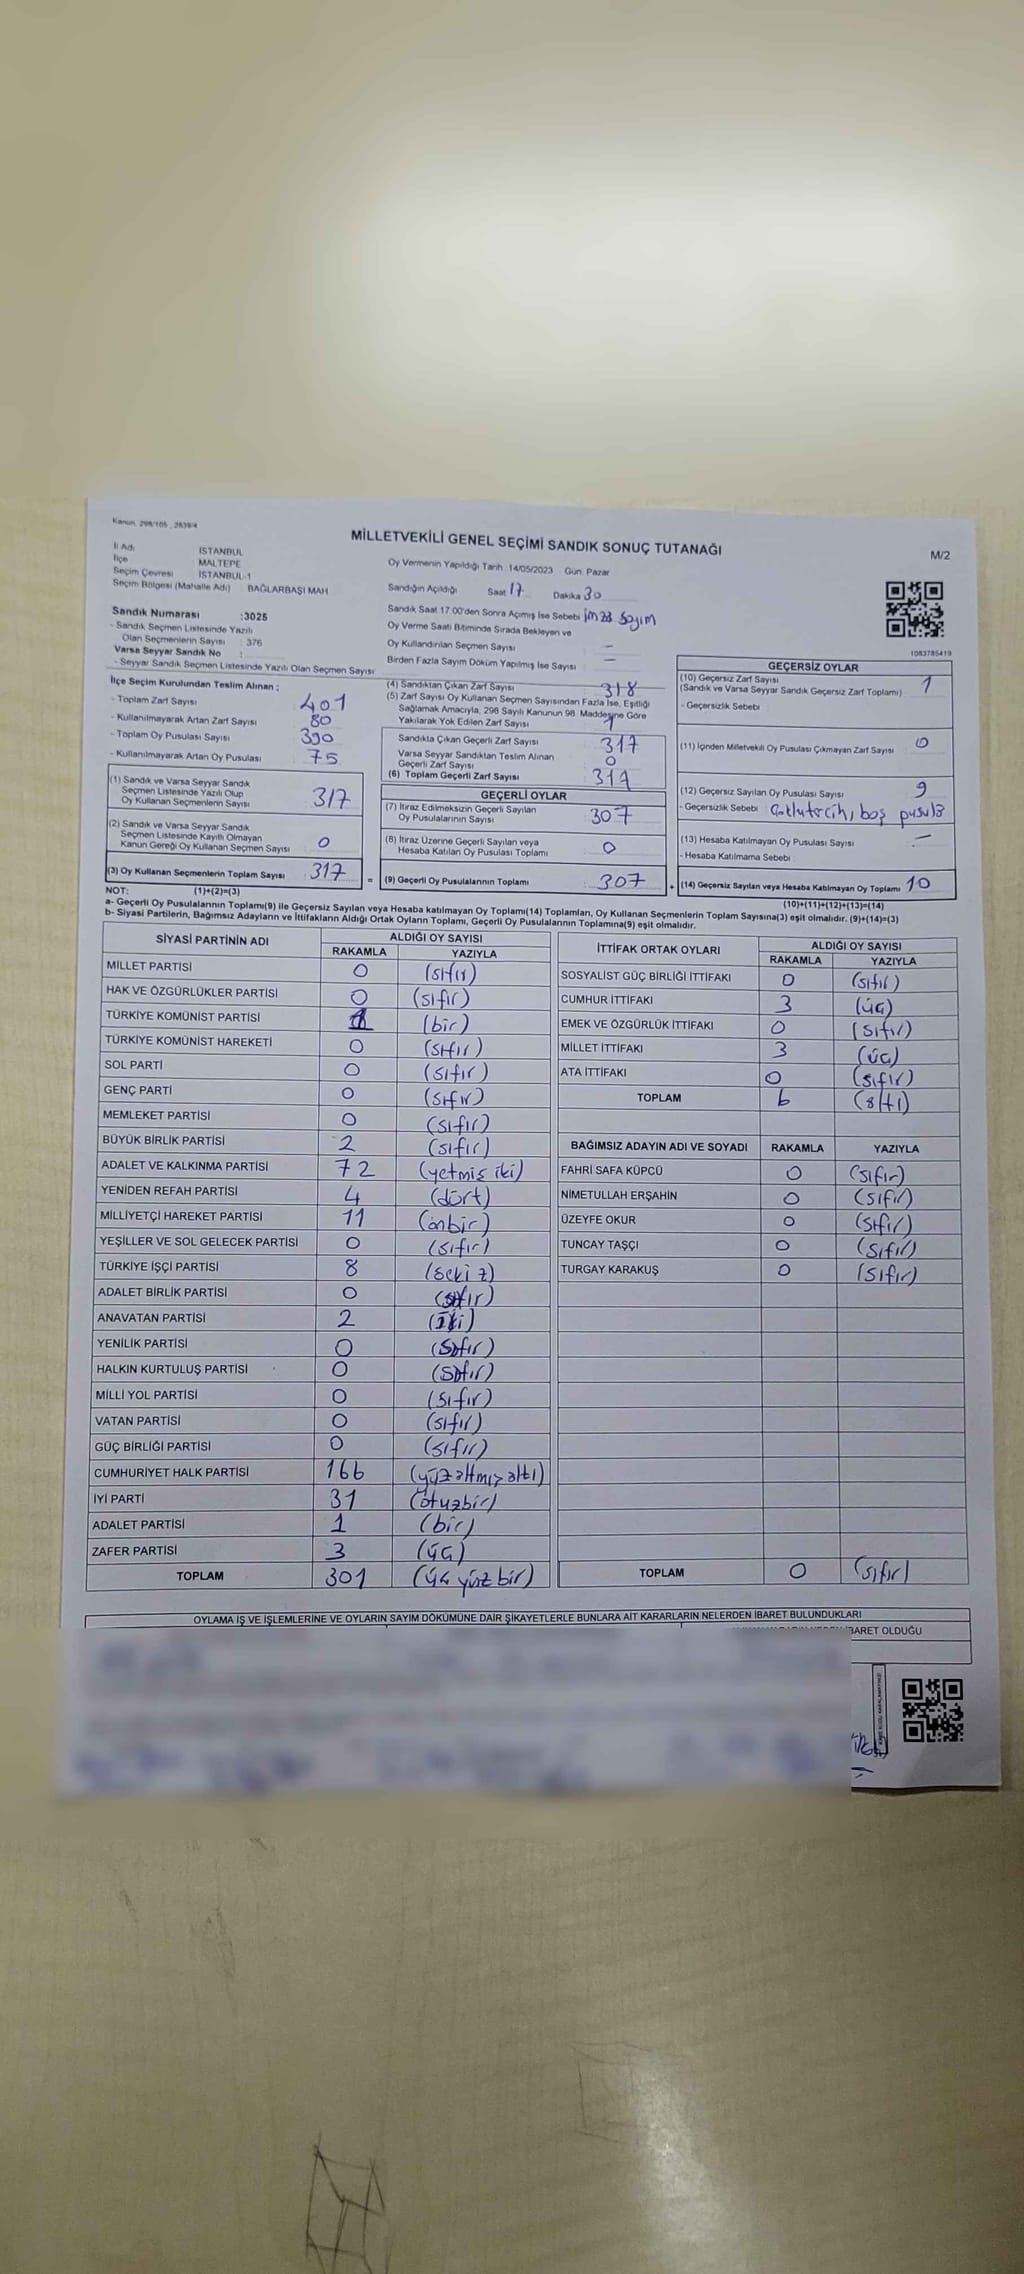 Kanun, 298/105 , 2839/4
MİLLETVEKİLİ GENEL SEÇİMİ SANDIK SONUÇ TUTANAĞI
M/2
İl Adı İSTANBUL
İlçe MALTEPE
Seçim Çevresi İSTANBUL-1
Seçim Bölgesi (Mahalle Adı) BAĞLARBAŞI MAH
Oy Vermenin Yapıldığı Tarih :14/05/2023 Gün: Pazar
Sandığın Açıldığı Saat 17 Dakika 30
Sandık Saat 17.00'den Sonra Açılmış İse Sebebi imza sayım
Oy Verme Saati Bitiminde Sırada Bekleyen ve
Oy Kullandırılan Seçmen Sayısı —
Birden Fazla Sayım Döküm Yapılmış İse Sayısı —
1083785419
Sandık Numarası :3025
- Sandık Seçmen Listesinde Yazılı
Olan Seçmenlerin Sayısı : 376
Varsa Seyyar Sandık No :
- Seyyar Sandık Seçmen Listesinde Yazılı Olan Seçmen Sayısı
İlçe Seçim Kurulundan Teslim Alınan ;
- Toplam Zarf Sayısı 401
- Kullanılmayarak Artan Zarf Sayısı 80
- Toplam Oy Pusulası Sayısı 390
- Kullanılmayarak Artan Oy Pusulası 75
(1) Sandık ve Varsa Seyyar Sandık
Seçmen Listesinde Yazılı Olup
Oy Kullanan Seçmenlerin Sayısı 317
(2) Sandık ve Varsa Seyyar Sandık
Seçmen Listesinde Kayıtlı Olmayan
Kanun Gereği Oy Kullanan Seçmen Sayısı 0
(3) Oy Kullanan Seçmenlerin Toplam Sayısı 317
(4) Sandıktan Çıkan Zarf Sayısı 318
(5) Zarf Sayısı Oy Kullanan Seçmen Sayısından Fazla İse, Eşitliği
Sağlamak Amacıyla, 298 Sayılı Kanunun 98. Maddesine Göre
Yakılarak Yok Edilen Zarf Sayısı 1
Sandıkta Çıkan Geçerli Zarf Sayısı 317
Varsa Seyyar Sandıktan Teslim Alınan
Geçerli Zarf Sayısı 0
(6) Toplam Geçerli Zarf Sayısı 317
GEÇERLİ OYLAR
(7) İtiraz Edilmeksizin Geçerli Sayılan
Oy Pusulalarının Sayısı 307
(8) İtiraz Üzerine Geçerli Sayılan veya
Hesaba Katılan Oy Pusulası Toplamı 0
= (9) Geçerli Oy Pusulalarının Toplamı 307
GEÇERSİZ OYLAR
(10) Geçersiz Zarf Sayısı 1
(Sandık ve Varsa Seyyar Sandık Geçersiz Zarf Toplamı)
- Geçersizlik Sebebi
(11) İçinden Milletvekili Oy Pusulası Çıkmayan Zarf Sayısı 0
(12) Geçersiz Sayılan Oy Pusulası Sayısı 9
- Geçersizlik Sebebi Çoklutercih, boş pusula
(13) Hesaba Katılmayan Oy Pusulası Sayısı —
- Hesaba Katılmama Sebebi
+ (14) Geçersiz Sayılan veya Hesaba Katılmayan Oy Toplamı 10
NOT: (1)+(2)=(3)
(10)+(11)+(12)+(13)=(14)
a- Geçerli Oy Pusulalarının Toplamı(9) ile Geçersiz Sayılan veya Hesaba katılmayan Oy Toplamı(14) Toplamları, Oy Kullanan Seçmenlerin Toplam Sayısına(3) eşit olmalıdır. (9)+(14)=(3)
b- Siyasi Partilerin, Bağımsız Adayların ve İttifakların Aldığı Ortak Oyların Toplamı, Geçerli Oy Pusulalarının Toplamına(9) eşit olmalıdır.
SİYASİ PARTİNİN ADI ALDIĞI OY SAYISI
RAKAMLA YAZIYLA
MİLLET PARTİSİ 0 (sıfır)
HAK VE ÖZGÜRLÜKLER PARTİSİ 0 (sıfır)
TÜRKİYE KOMÜNİST PARTİSİ 1 (bir)
TÜRKİYE KOMÜNİST HAREKETİ 0 (sıfır)
SOL PARTİ 0 (sıfır)
GENÇ PARTİ 0 (sıfır)
MEMLEKET PARTİSİ 0 (sıfır)
BÜYÜK BİRLİK PARTİSİ 2 (sıfır)
ADALET VE KALKINMA PARTİSİ 72 (yetmiş iki)
YENİDEN REFAH PARTİSİ 4 (dört)
MİLLİYETÇİ HAREKET PARTİSİ 11 (onbir)
YEŞİLLER VE SOL GELECEK PARTİSİ 0 (sıfır)
TÜRKİYE İŞÇİ PARTİSİ 8 (sekiz)
ADALET BİRLİK PARTİSİ 0 (sıfır)
ANAVATAN PARTİSİ 2 (iki)
YENİLİK PARTİSİ 0 (sıfır)
HALKIN KURTULUŞ PARTİSİ 0 (sıfır)
MİLLİ YOL PARTİSİ 0 (sıfır)
VATAN PARTİSİ 0 (sıfır)
GÜÇ BİRLİĞİ PARTİSİ 0 (sıfır)
CUMHURİYET HALK PARTİSİ 166 (yüzaltmışaltı)
İYİ PARTİ 31 (otuzbir)
ADALET PARTİSİ 1 (bir)
ZAFER PARTİSİ 3 (üç)
TOPLAM 301 (üç yüz bir)
İTTİFAK ORTAK OYLARI ALDIĞI OY SAYISI
RAKAMLA YAZIYLA
SOSYALİST GÜÇ BİRLİĞİ İTTİFAKI 0 (sıfır)
CUMHUR İTTİFAKI 3 (üç)
EMEK VE ÖZGÜRLÜK İTTİFAKI 0 (sıfır)
MİLLET İTTİFAKI 3 (üç)
ATA İTTİFAKI 0 (sıfır)
TOPLAM 6 (altı)
BAĞIMSIZ ADAYIN ADI VE SOYADI RAKAMLA YAZIYLA
FAHRİ SAFA KÜPCÜ 0 (sıfır)
NİMETULLAH ERŞAHİN 0 (sıfır)
ÜZEYFE OKUR 0 (sıfır)
TUNCAY TAŞÇI 0 (sıfır)
TURGAY KARAKUŞ 0 (sıfır)
TOPLAM 0 (sıfır)
OYLAMA İŞ VE İŞLEMLERİNE VE OYLARIN SAYIM DÖKÜMÜNE DAİR ŞİKAYETLERLE BUNLARA AİT KARARLARIN NELERDEN İBARET BULUNDUKLARI
İBARET OLDUĞU